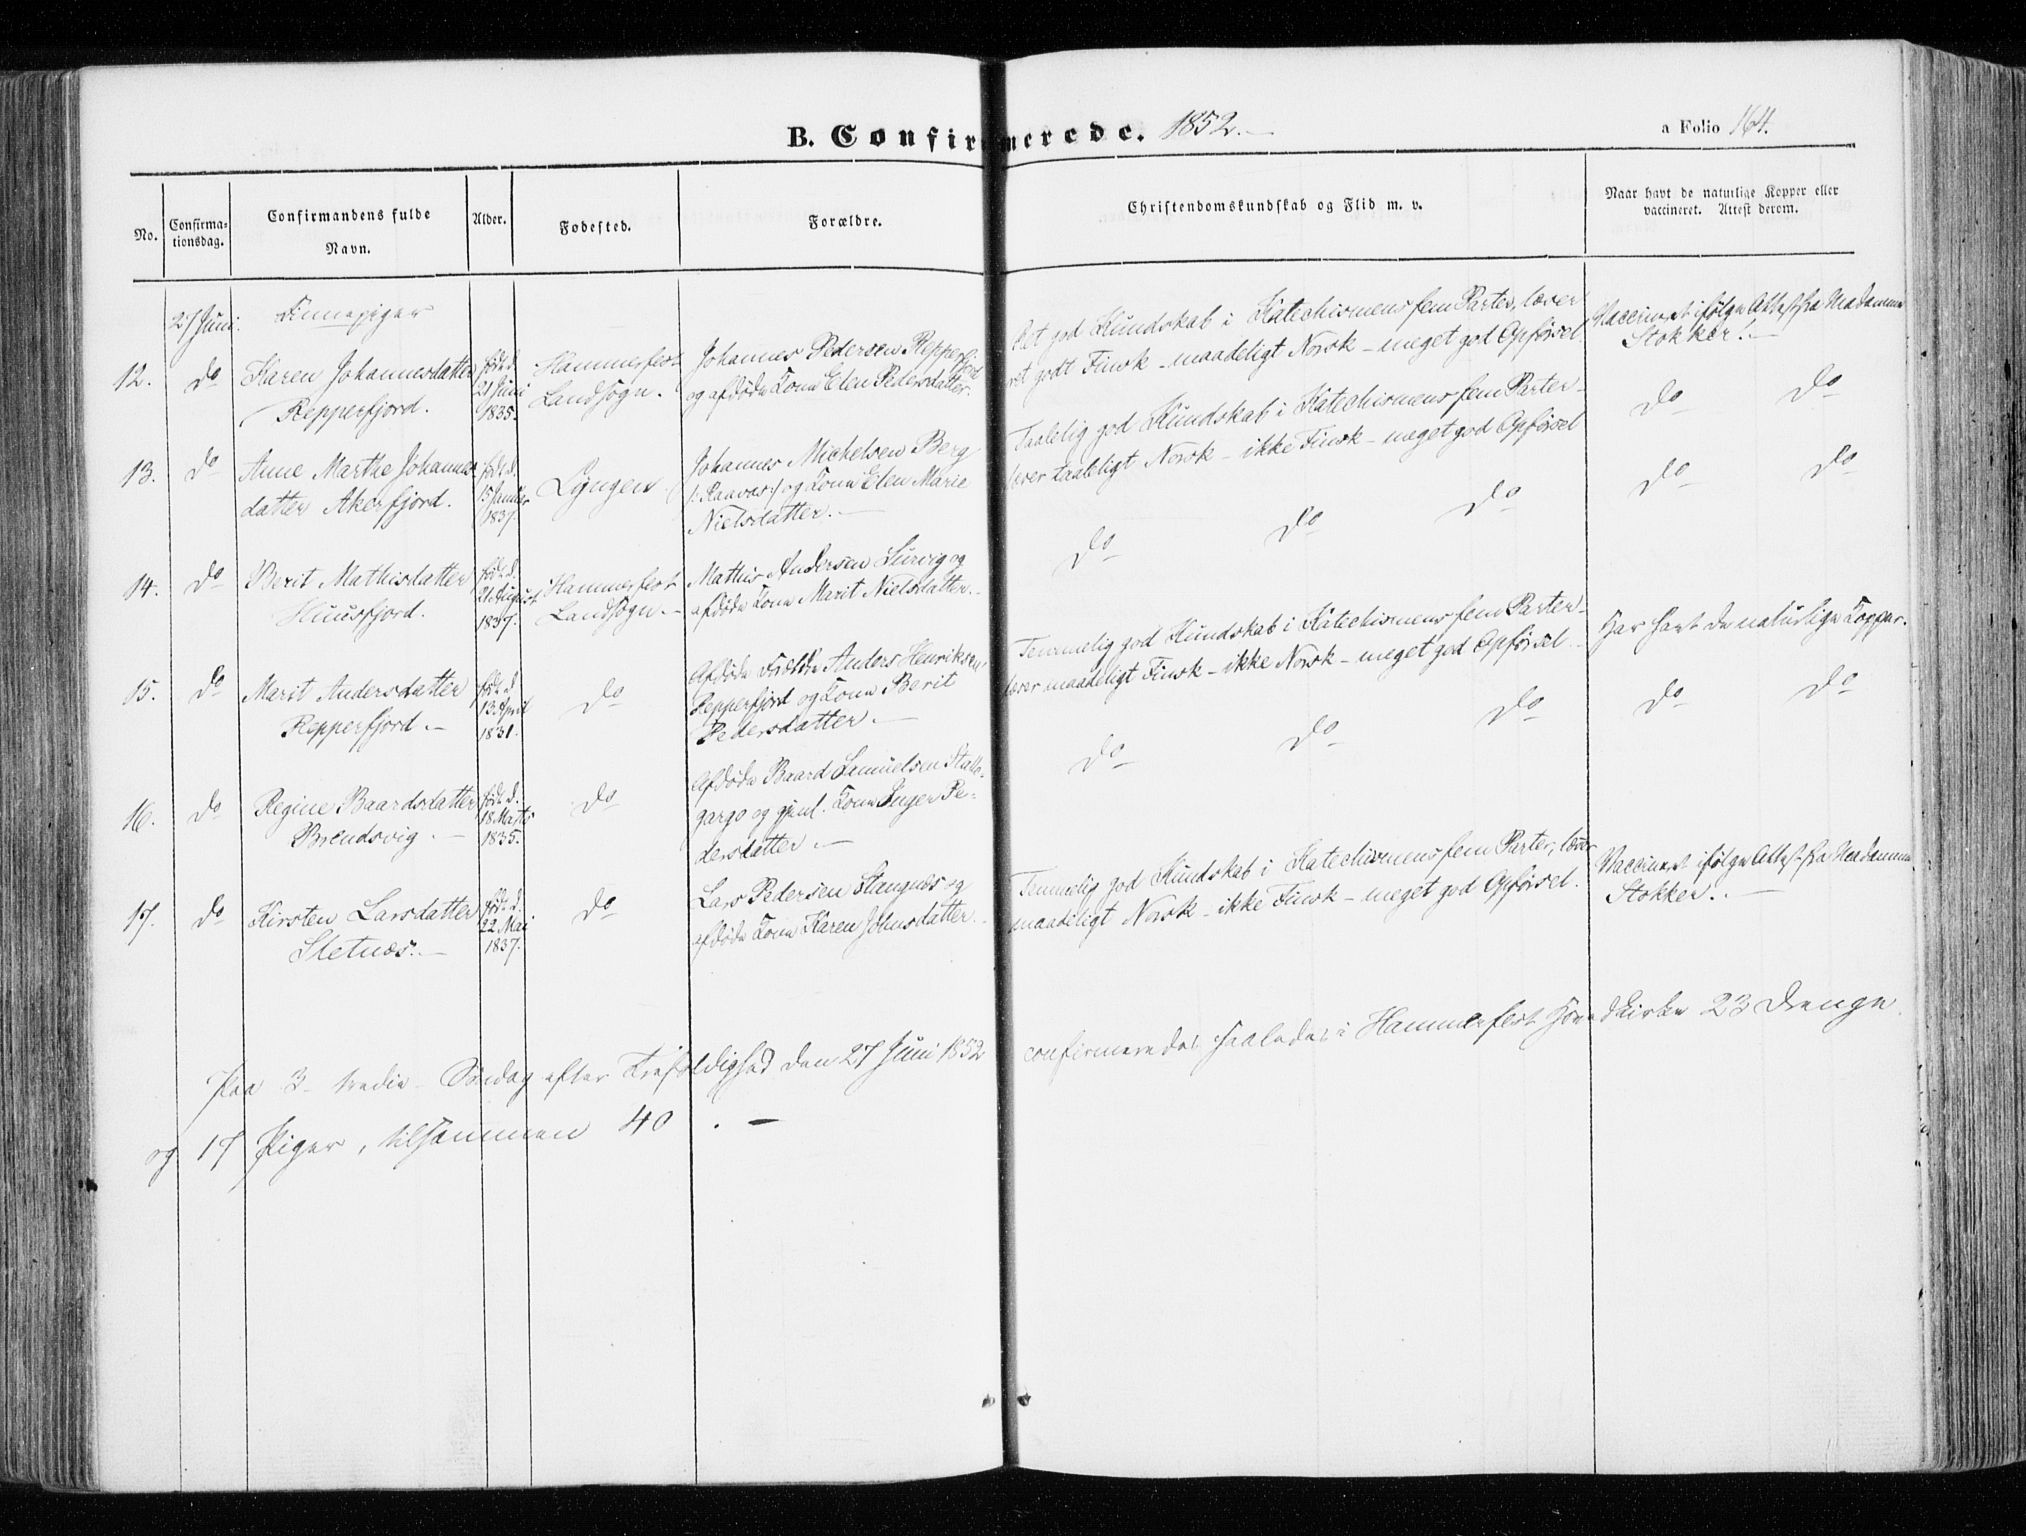 B. Confirmerede. 1852. a Folio 164.
No.
Confirma-
tionsdag.
Confirmandens fulde
Navn.
Alder.
Fødested.
Forældre.
Christendomskundskab og Flid m. v.
Naar havt de naturlige Kopper eller
vaccineret. Attest derom.
27 Juni. Finnepiger
12. do Karen Johannesdatter
Repperfjord.
født d.
21 Juni
1835.
Hammerfest
Landsogn.
Johannes Pedersen Repperfjord
og afdøde Kone Elen Pedersdatter.
Ret god Kundskab i Katechismens fem Parter, læser
ret godt Finsk - maadeligt Norsk - meget god Opførsel.
Vaccineret ifølge Attest fra Madamme
Stokker.
13. do Anne Marthe Johannes
datter Akerfjord.
født d.
15 Januar
1837.
Lyngen
Johannes Michelsen Berg
/: Raavas :/ og Kone Elen Marie
Nielsdatter.
Taalelig god Kundskab i Katechismens fem Parter -
læser taaleligt Norsk - ikke Finsk - meget god Opførsel
do do
14. do Berit Mathisdatter
Huusfjord.
født d.
21. August
1837.
Hammerfest
Landsogn.
Mathis Andersen Survig og
afdøde Kone Marit Nielsdatter.
do do do
do do
15. do Marit Andersdatter
Repperfjord.
født d.
13. April
1831.
do
Afdøde Anders Henriksen
Repperfjord og Kone Berit
Pedersdatter.
Temmelig god Kundskab i Katechismens fem Parter -
læser maadeligt Finsk - ikke Norsk - meget god Opførsel.
Har havt de naturlige Kopper.
16. do Regine Baardsdatter
Brendsvig.
født d.
18 Marts
1835.
do
Afdøde Baard Samuelsen Stalle-
gargo og gjenl. Kone Inger Pe-
dersdatter.
do do do
do do
17. do Kirsten Larsdatter
Sletnæs.
født d.
22 Mai
1837.
do
Lars Pedersen Stangnæs og
afdøde Kone Karen Johnsdatter.
Temmelig god Kundskab i Katechismens fem Parter, læser
maadeligt Norsk - ikke Finsk - meget god Opførsel.
Vaccineret ifølge Attest fra Madamme
Stokker.
Paa 3 - tredie - Søndag efter Trefoldighed den 27 Juni 1852 confirmeredes saaledes i Hammerfest Hovedkirke 23 Drenge
og 17 Piger, tilsammen 40. -